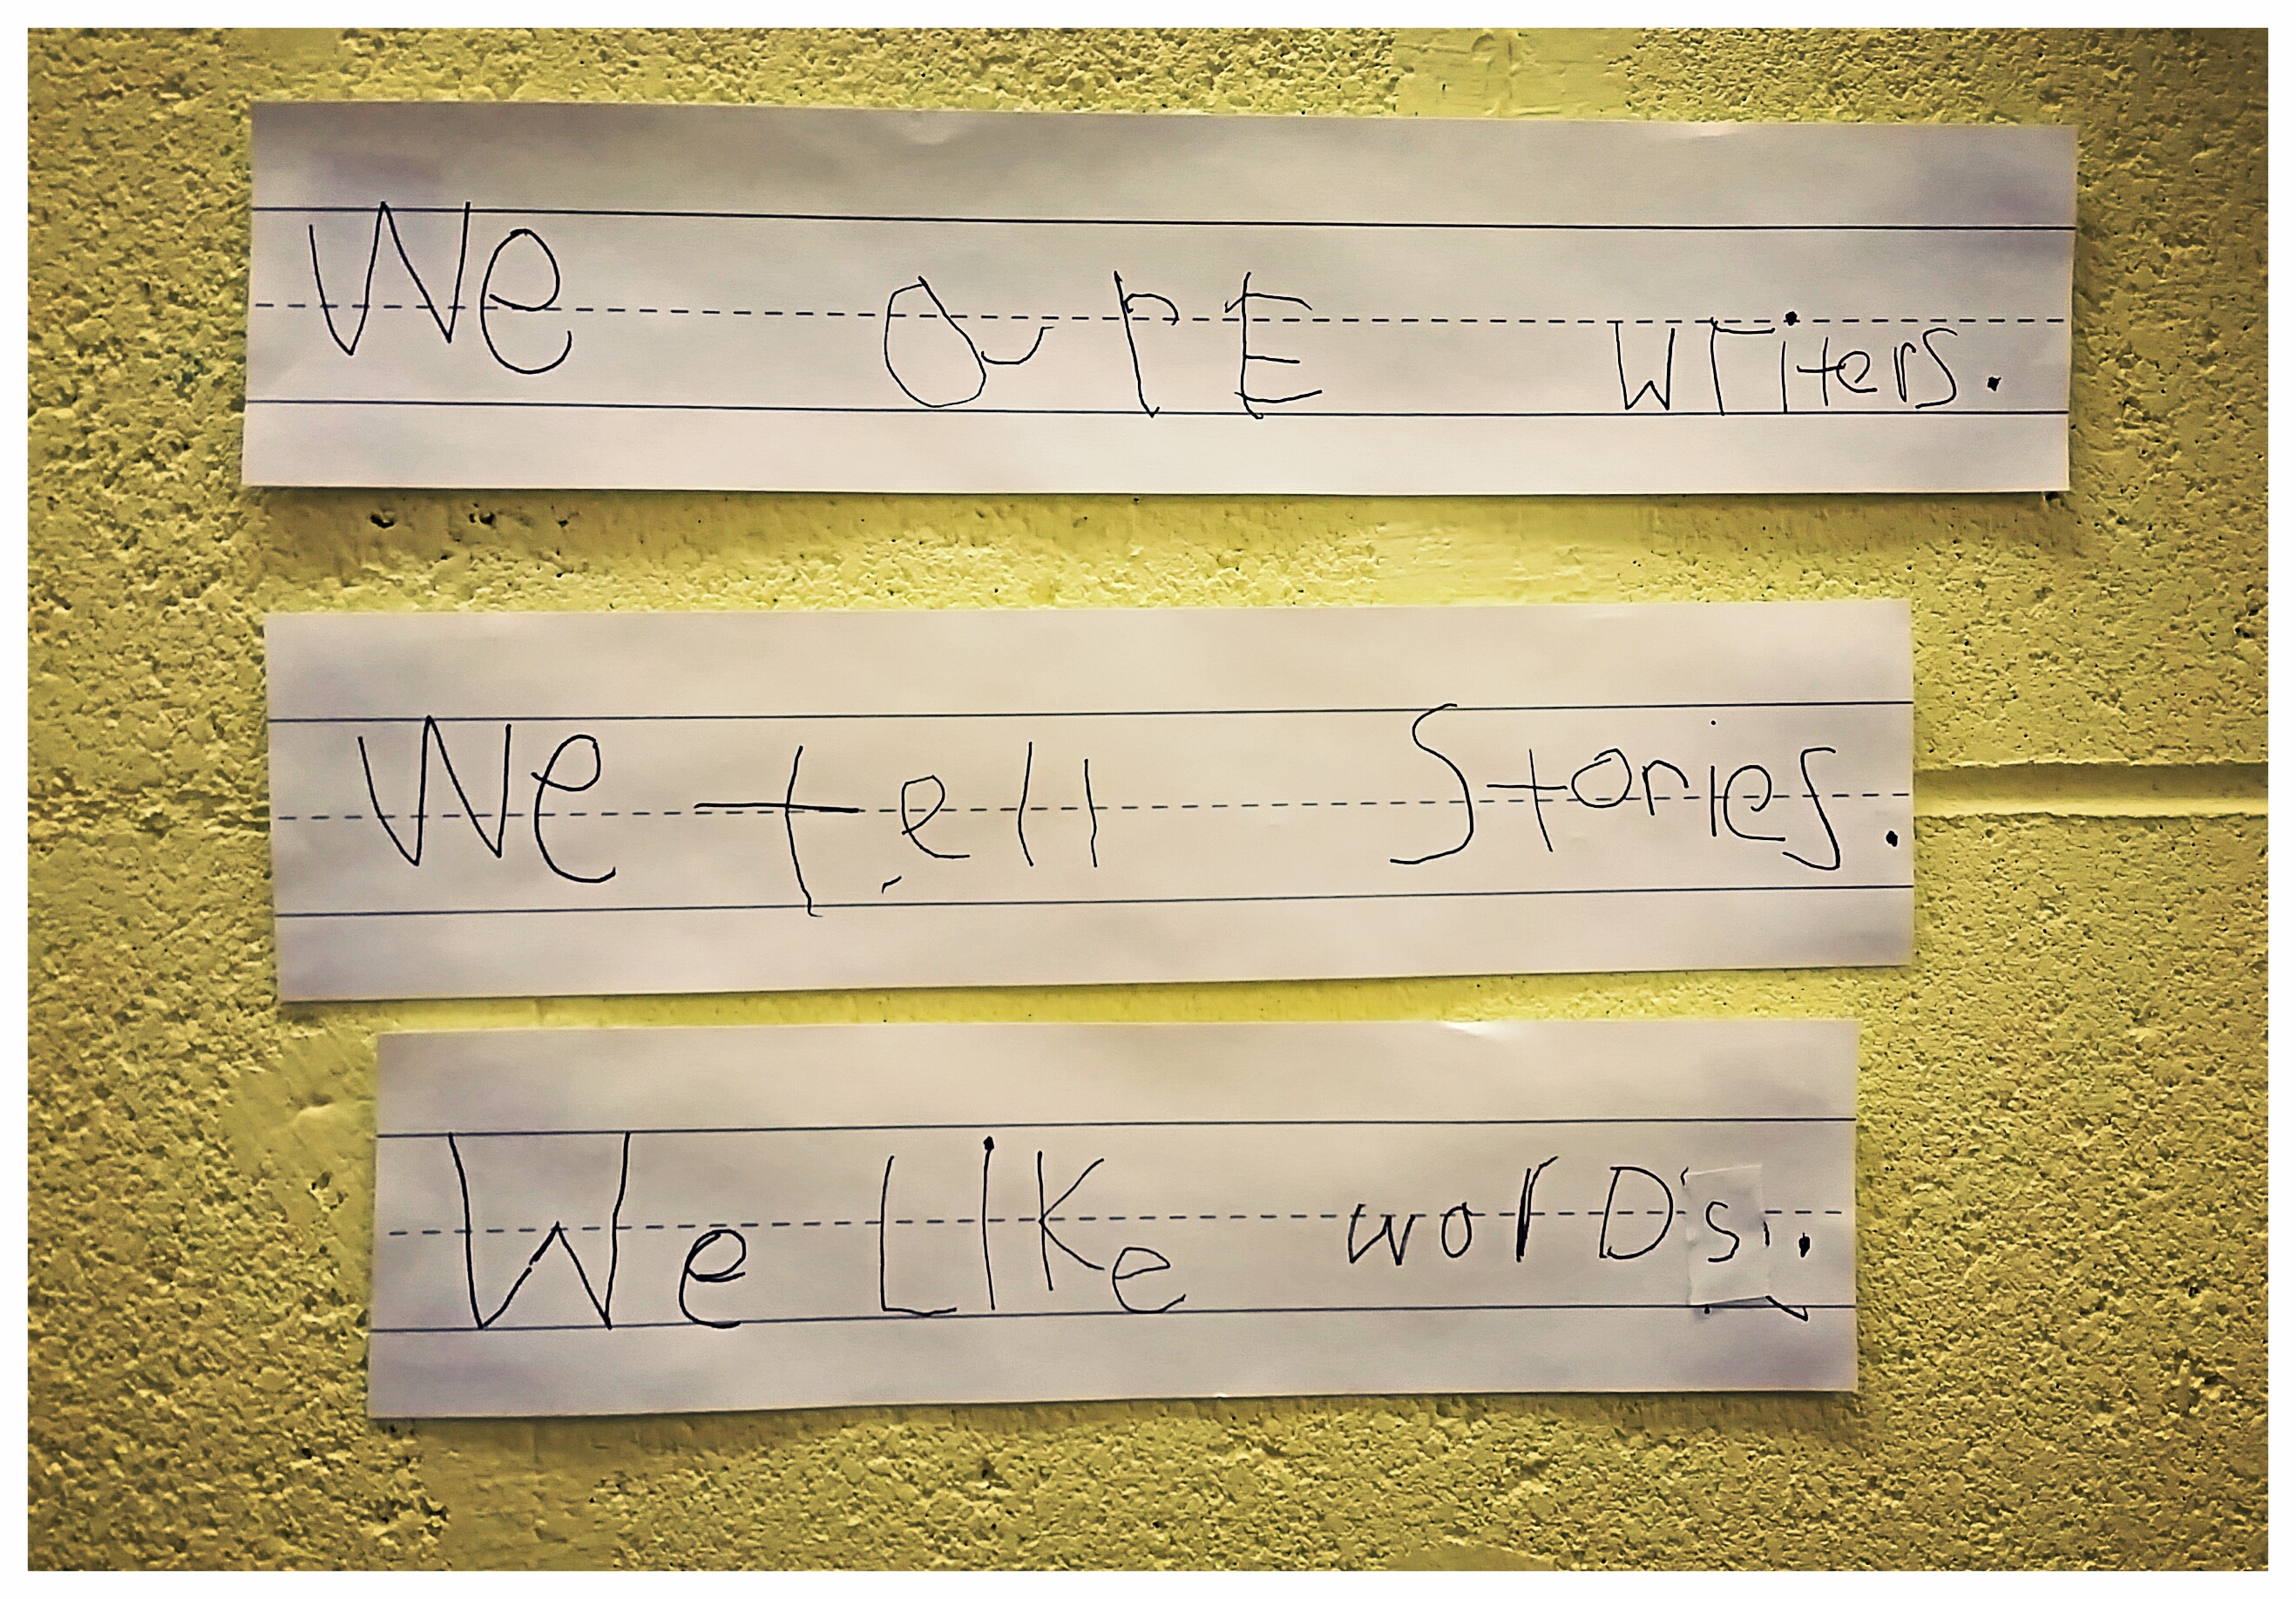 We arE writers.
We tell Stories.
We LIKe worDs.